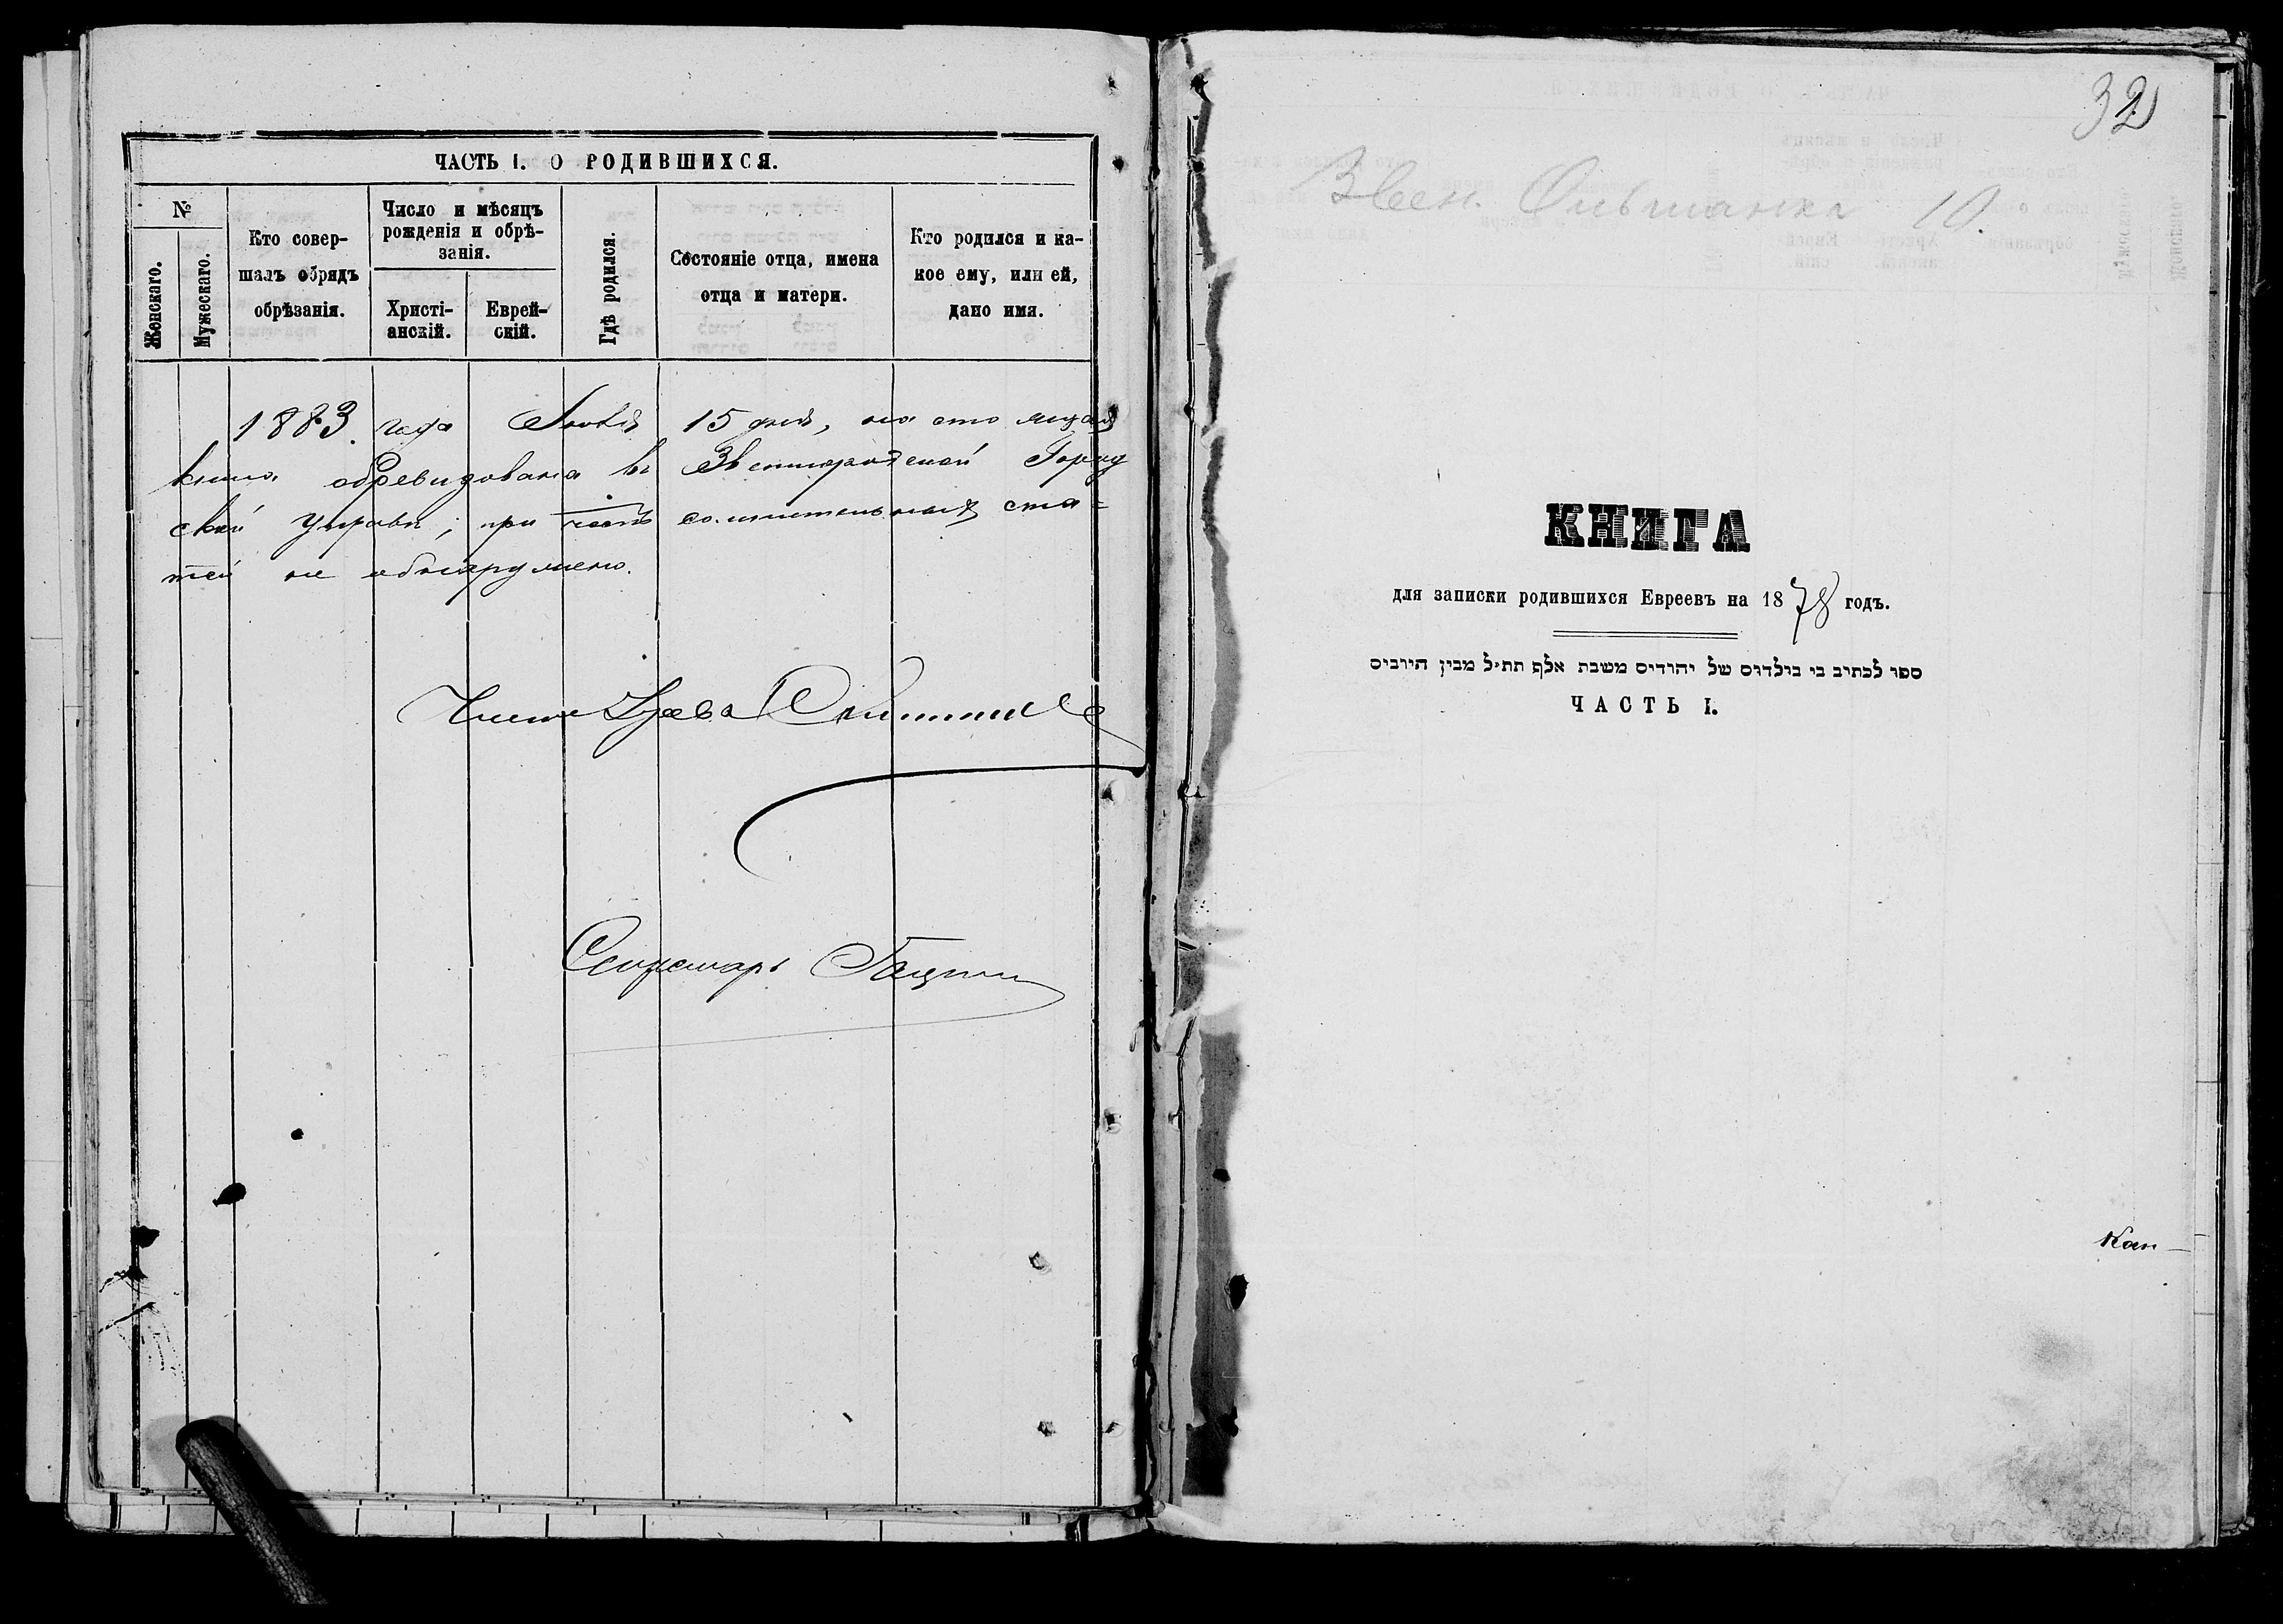 ЧАСТЬ I. О РОДИВШИХСЯ.
№
Женскаго.
Мужескаго.
Кто совер-
шалъ обрядъ
обрѣзанія.
Число и мѣсяцъ
рожденія и обрѣ-
занія.
Христі-
анскій.
Еврей-
скій.
Гдѣ родился.
Состояніе отца, имена
отца и матери.
Кто родился и ка-
кое ему, или ей,
дано имя.
1883 года 15 дня,
книга обревизована въ Звенигородской Город
ской Управѣ; при чемъ сомнительныхъ ста=
тей не обнаружено.
Членъ Управы
Секретарь
32
Звен. Ольшанка 10.
КНИГА
для записки родившихся Евреевъ на 1878 годъ.
ספר לכתיב בי בילדוס של יהודיס משבת אלף תת״ל מבין היוביס
ЧАСТЬ I.
Кан-